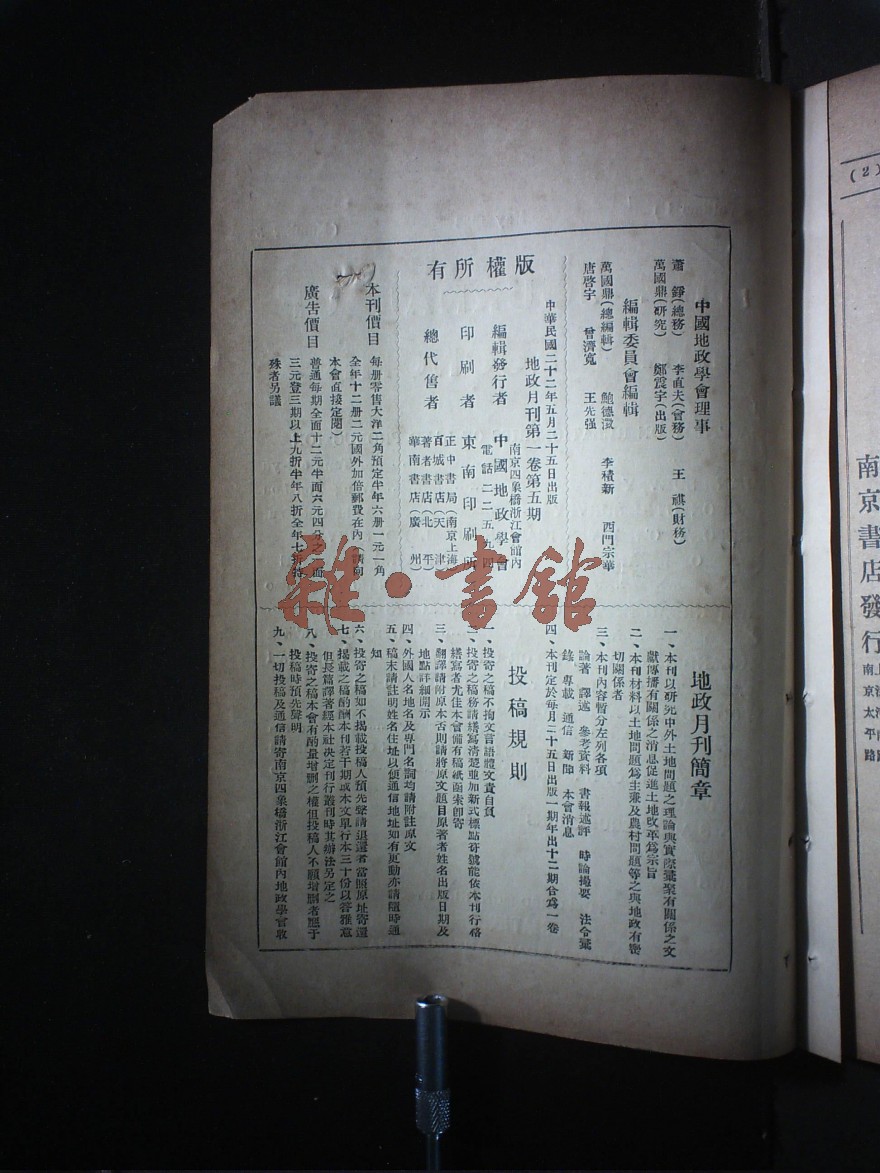 中國地政學會理事
蕭　錚(總務)　李直夫(會務)　王　祺(財務)
萬國鼎(研究)　鄭震宇(出版)
編輯委員會編輯
萬國鼎(總編輯)　鮑德澂　李積新　西門宗華
唐啓宇　曾濟寬　王先强
版權所有
中華民國二十二年五月二十五日出版
地政月刊第一卷第五期
編輯發行者　中國地政學會
南京四象橋浙江會館內
電話二二五九四
印刷者　東南印刷所
總代售者
正中書局(南京上海)
百城書店(天津)
著者書店(北平)
華南書店(廣州)
本刊價目
每册零售大洋二角預定半年六册一元一角
全年十二册二元國外加倍郵費在內(請向
本會直接定閱)
廣告價目
普通每期全面十二元半面六元四分之一面
三元登三期以上九折半年八折全年七折特
殊者另議
地政月刊簡章
一、本刊以研究中外土地問題之理論與實際彙聚有關係之文
獻傳播有關係之消息促進土地改革爲宗旨
二、本刊材料以土地問題爲主兼及農村問題等之與地政有密
切關係者
三、本刊內容暫分左列各項
論著　譯述　參考資料　書報述評　時論撮要　法令彙
錄　專載　通信　新聞　本會消息
四、本刊定於每月二十五日出版一期年出十二期合爲一卷
投稿規則
一、投寄之稿不拘文言語體文責自負
二、投寄之稿務請繕寫清楚並加新式標點符號能依本刊行格
繕寫者尤佳本會備有稿紙函索卽寄
三、翻譯請附原本否則請將原文題目原著者姓名出版日期及
地點詳細開示
四、外國人名地名及專門名詞均請附註原文
五、稿末請註明姓名住址以便通信地址如有更動亦請隨時通
知
六、投寄之稿如不揭載投稿人預先聲請退還者當照原址寄還
七、揭載之稿酌酬本刊若干期或本文單行本三十份以答雅意
但長篇譯著經本社決定刊行叢刊時其辦法另定之
八、投寄之稿本會有酌量增删之權但投稿人不願增删者應于
投稿時預先聲明
九、一切投稿及通信請寄南京四象橋浙江會館內地政學會收
雜·書館
(2)
南京書店發行
南京太平路